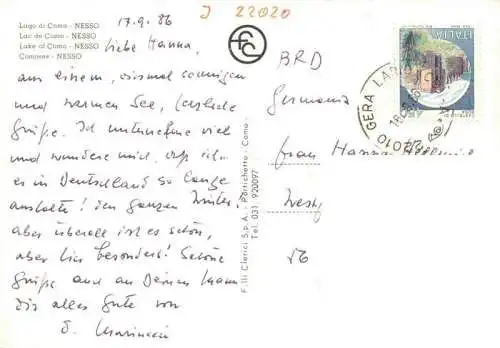 Lago di Como - NESSO
Lac de Como - NESSO
Lake of Como - NESSO
Comersee - NESSO
17.9.86
J 22020
Liebe Hanna,
aus einem, diesmal sonnigen
und warmen See, herzliche
Grüße. Ich unternehme viel
und wundere mich, daß ich
es in Deutschland so lange
aushalte! den ganzen Winter!
aber überall ist es schön,
aber hier besonders! Schöne
Grüße auch an Deinen Mann
Dir alles Gute von
F.lli Clerici S.p.A. - Portichetto - Como -
Tel. 031 920097
BRD
Germania
Frau Hanna
56
ITALIA
GERA LARIO